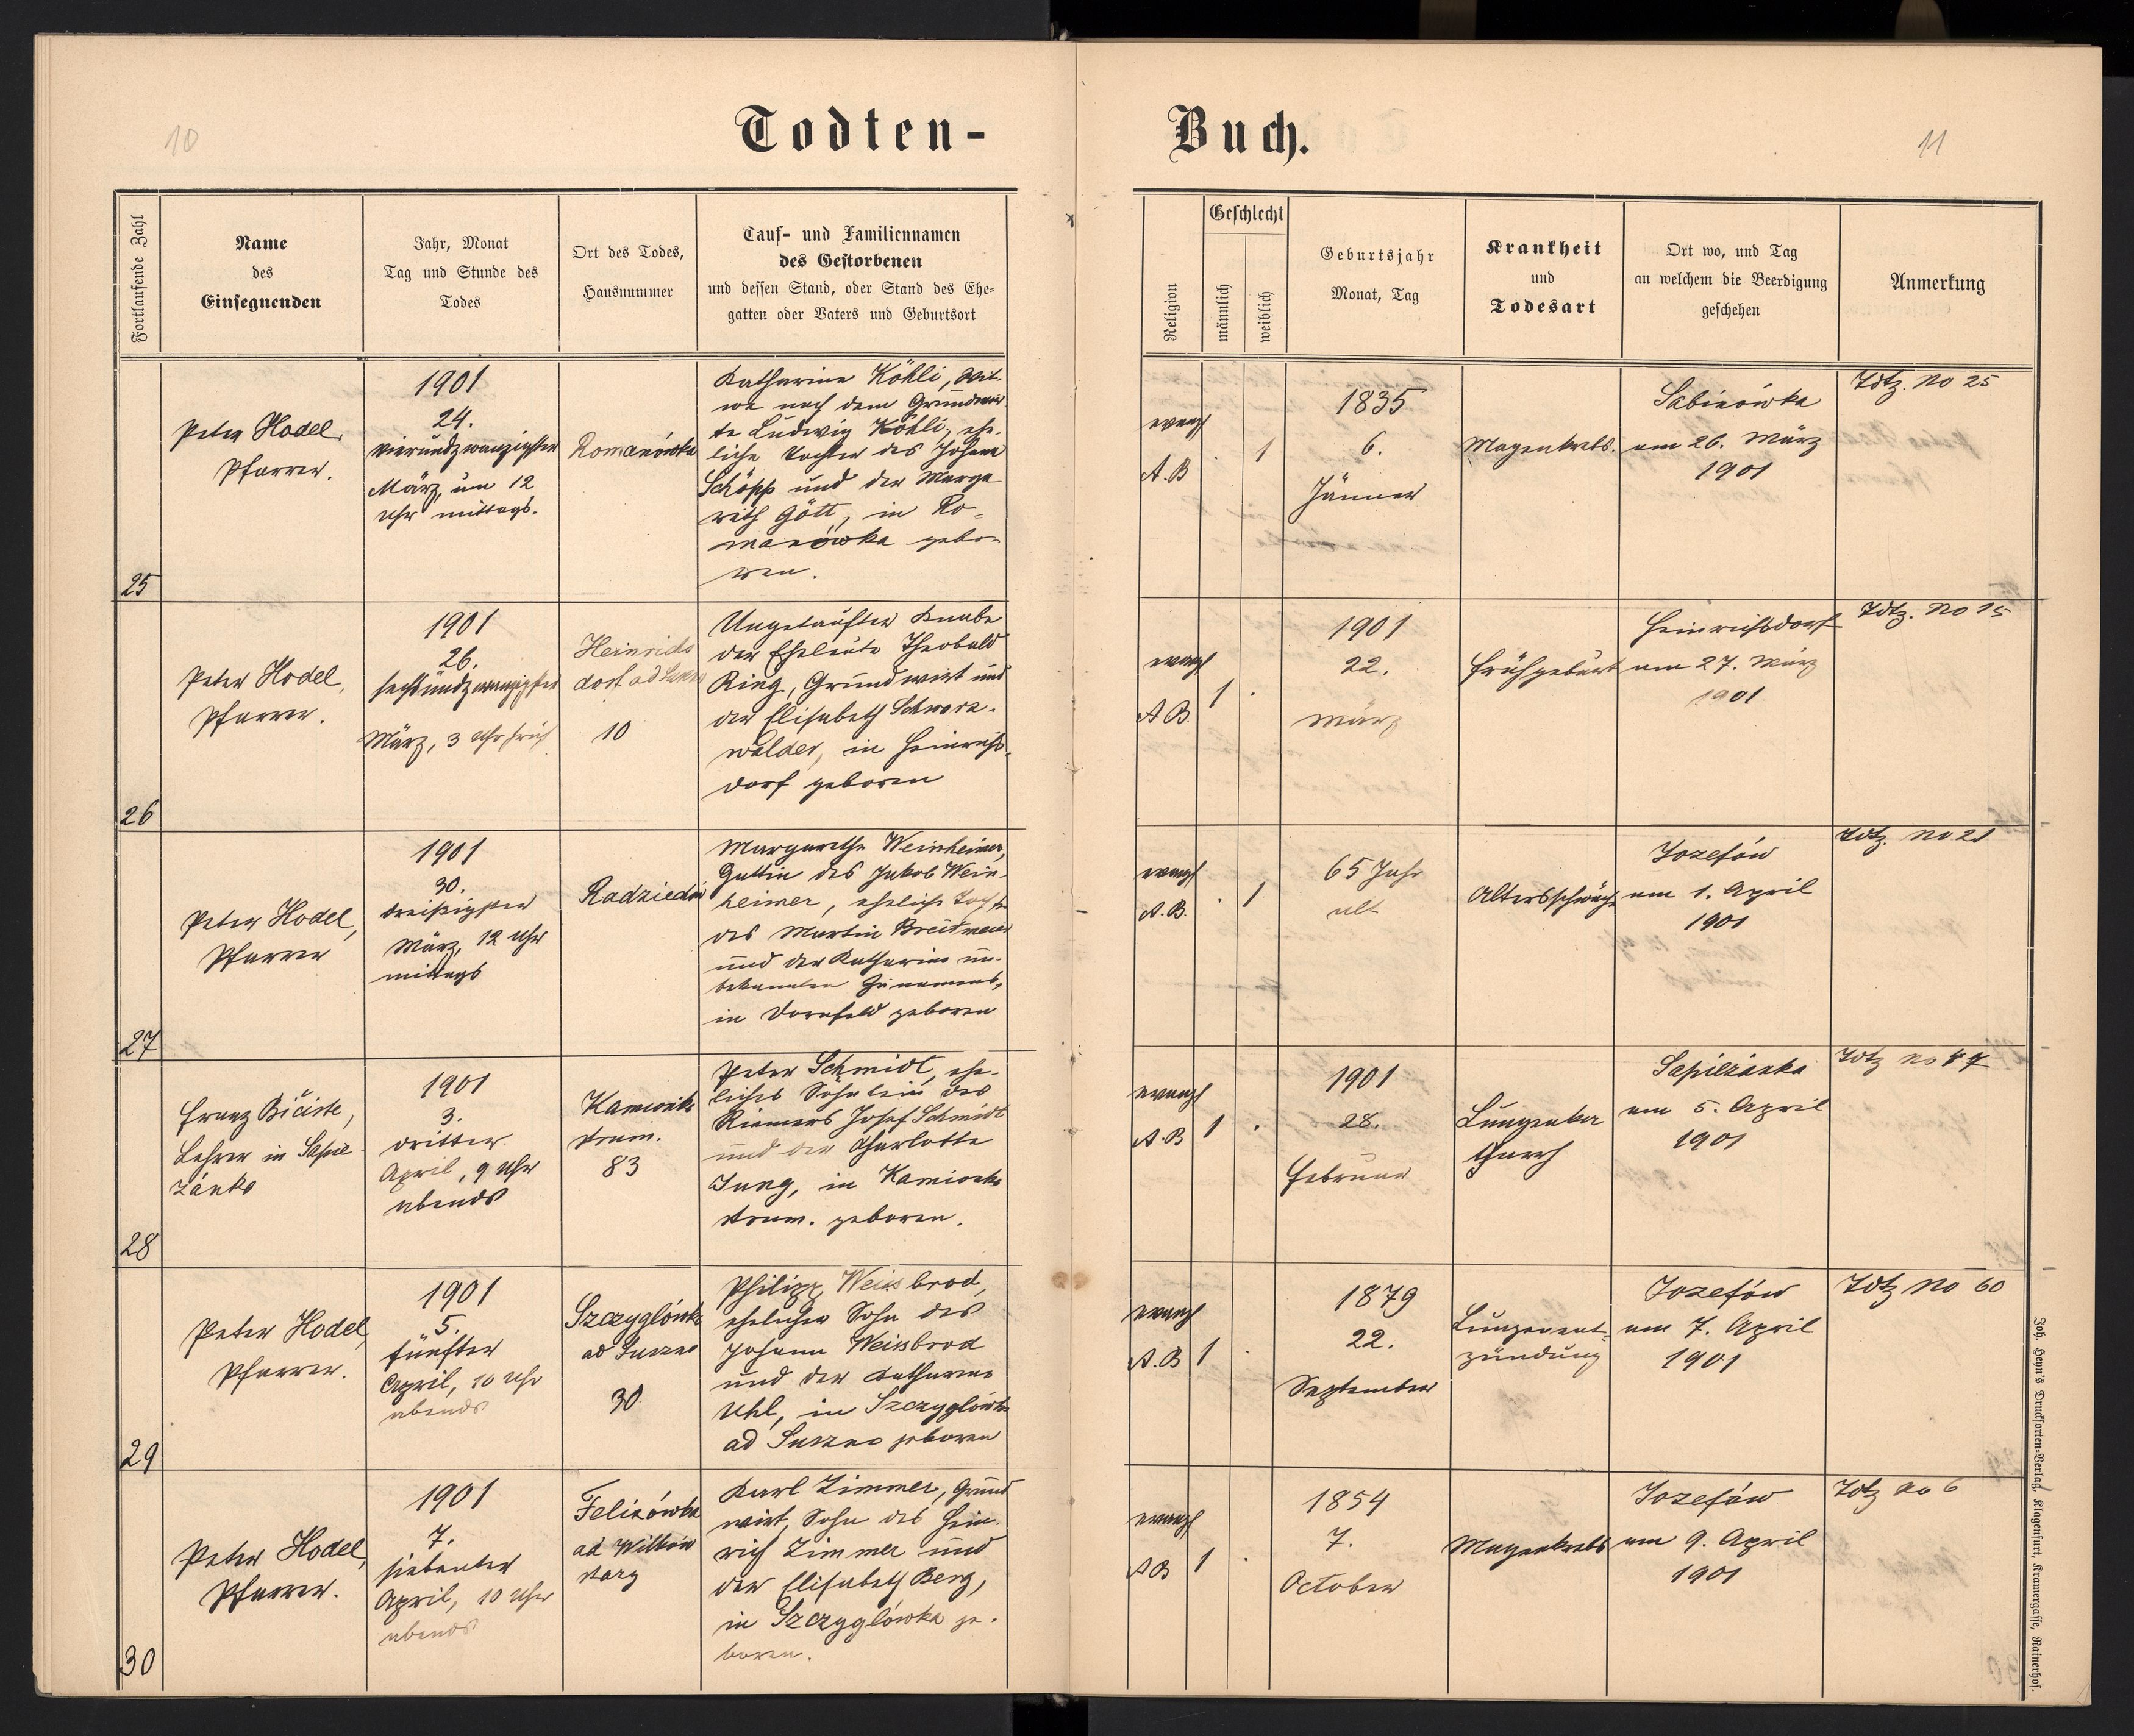 10
Todten-
Buch.
11
Fortlaufende Zahl
Name
des
Einsegnenden
Jahr, Monat
Tag und Stunde des
Todes
Ort des Todes,
Hausnummer
Tauf- und Familiennamen
des Gestorbenen
und dessen Stand, oder Stand des Ehe-
gatten oder Vaters und Geburtsort
Religion
Geschlecht
männlich
weiblich
Geburtsjahr
Monat, Tag
Krankheit
und
Todesart
Ort wo, und Tag
an welchem die Beerdigung
geschehen
Anmerkung
25
Peter Hodel,
Pfarrer.
1901
24.
vierundzwanzigster
März, um 12
Uhr mittags.
Romanówka
Katharina Köhli, Wit-
we nach dem Grundwir
te Ludwig Köhli, ehe-
liche Tochter des Johann
Schöpp und der Marga
reth Gött, in Ro-
manówka gebo-
ren.
evang
A.B
1
1835
6.
Jänner
Magenkrebs.
Sabinówka
am 26. März
1901
Tdtz. No 25
26
Peter Hodel,
Pfarrer.
1901
26.
sechsundzwanzigster
März, 3 Uhr früh
Heinrichs
dorf ad
10
Ungetaufter Knabe
der Eheleute Theobald
Ring, Grundwirt und
der Elisabeth Schwarz-
wälder, in Heinrichs-
dorf geboren
evang
A.B.
1
1901
22.
März
Frühgeburt
Heinrichsdorf
am 27. März
1901
Tdtz. No 15
27
Peter Hodel,
Pfarrer
1901
30.
dreißigster
März, 12 Uhr
mittags
Margarethe Weinheimer,
Gattin des Jakob Wein-
heimer, eheliche Tochter
des Martin Breitmeier
und der Katharina un-
bekannten Zunamens,
in Dornfeld geboren
evang
A.B.
1
65 Jahr
alt
Altersschwäche
Jozefów
am 1. April
1901
Tdtz. No 21
28
Franz
Lehrer in Sapie
żánka
1901
3.
dritter
April, 9 Uhr
abends
Kamionka
strum.
83
Peter Schmidt, ehe-
liches Söhnlein des
Riemers Josef Schmidt
und der Charlotte
Jung, in Kamionka
strum. geboren.
evang
A.B
1
1901
28.
Februar
Lungenka
tharrh
Sapieżánka
am 5. April
1901
Tdtz No
29
Peter Hodel,
Pfarrer.
1901
5.
fünfter
April, 10 Uhr
abends
Szczyglówka
ad Suszno
30
Philipp Weissbrod,
ehelicher Sohn des
Johann Weissbrod
und der Katharina
Uhl, in Szczyglówka
ad Suszno geboren
evang
A.B
1
1879
22.
September
Lungenent-
zündung
Jozefów
am 7. April
1901
Tdtz No 60
30
Peter Hodel,
Pfarrer.
1901
7.
siebenter
April, 10 Uhr
abends
Felizówka
ad Witków
stary
Karl Zimmer, Grund
wirt, Sohn des Hein-
rich Zimmer und
der Elisabeth Berg,
in Szczyglówka ge-
boren.
evang
AB
1
1854
7.
October
Magenkrebs
Jozefów
am 9. April
1901
Tdtz No 6
Joh. Heyn's Drucksorten-Verlag, Klagenfurt, Kramergasse, Rainerhof.